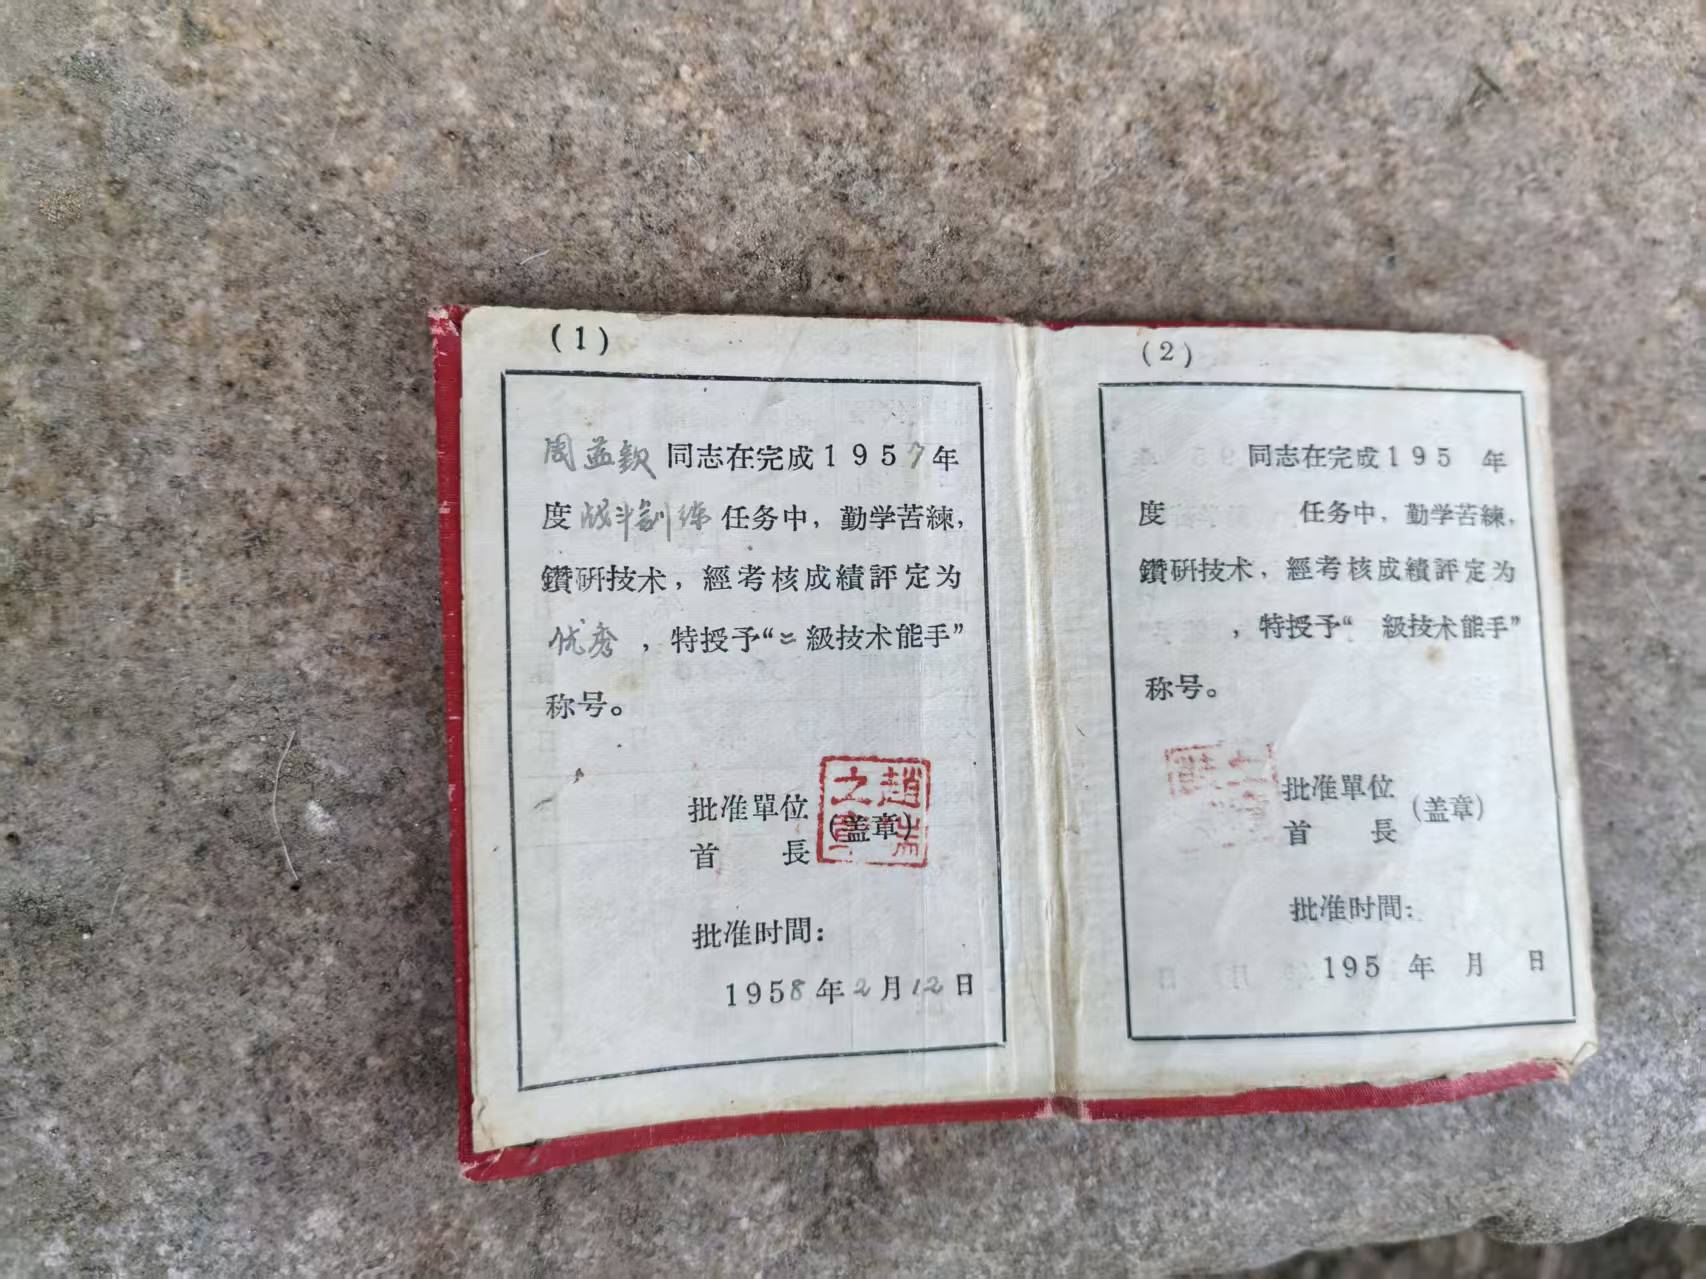 (1)
周益欽同志在完成1957年
度战斗訓练任务中，勤学苦練，
鑽研技术，經考核成績評定为
优秀，特授予“二級技术能手”
称号。
批准單位
(盖章)
首 長
趙
之章
批准时間：
1958年2月12日
(2)
同志在完成195 年
度 任务中，勤学苦練，
鑽研技术，經考核成績評定为
，特授予“ 級技术能手”
称号。
批准單位
(盖章)
首 長
批准时間：
195 年 月 日